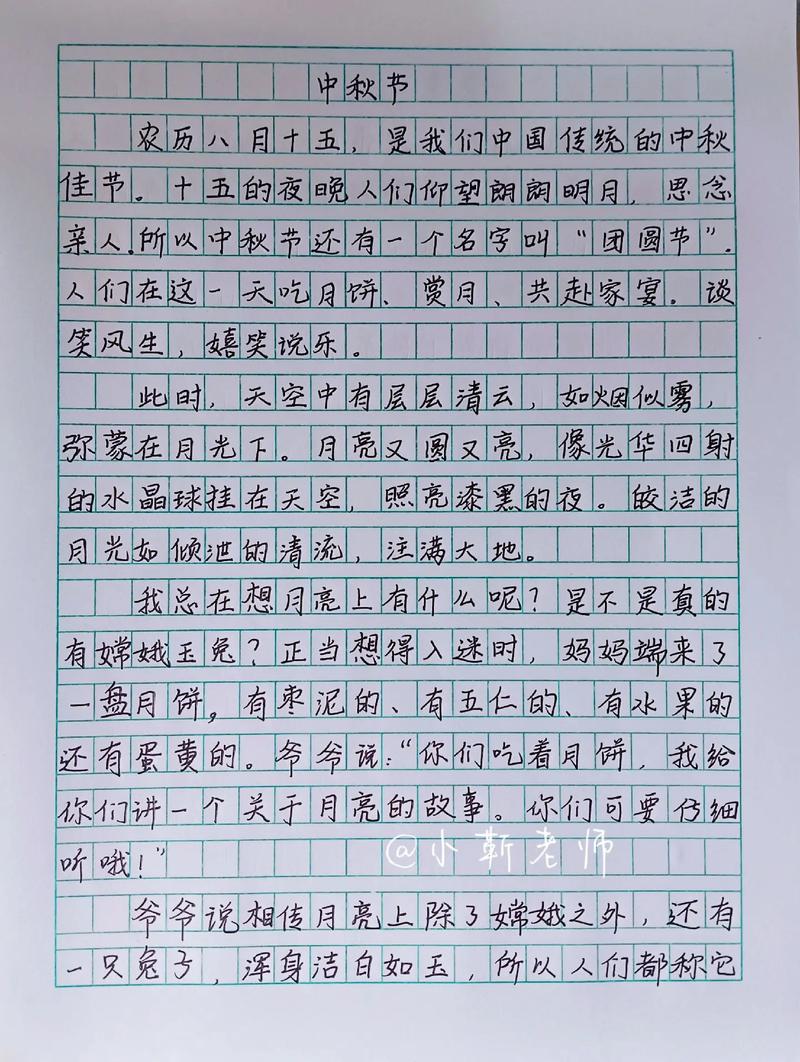 中秋节
农历八月十五，是我们中国传统的中秋
佳节。十五的夜晚人们仰望朗朗明月，思念
亲人.所以中秋节还有一个名字叫“团圆节”.
人们在这一天吃月饼、赏月、共赴家宴。谈
笑风生，嬉笑说乐。
此时，天空中有层层清云，如烟似雾，
弥蒙在月光下。月亮又圆又亮，像光华四射
的水晶球挂在天空，照亮漆黑的夜。皎洁的
月光如倾泄的清流，注满大地。
我总在想月亮上有什么呢？是不是真的
有嫦娥玉兔？正当想得入迷时，妈妈端来了
一盘月饼，有枣泥的、有五仁的、有水果的
还有蛋黄的。爷爷说：“你们吃着月饼，我给
你们讲一个关于月亮的故事。你们可要仔细
听哦！”
@小靳老师
爷爷说相传月亮上除了嫦娥之外，还有
一只兔子，浑身洁白如玉，所以人们都称它